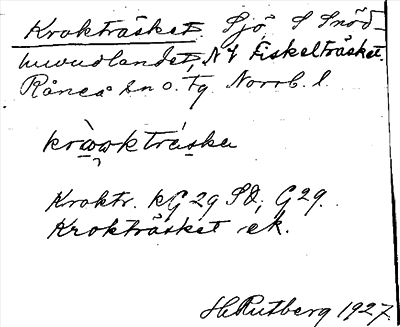 Kroketräsket. Sjö S Snöd-
huvudlandet, NV Fiskelträsket.
Råneå sn o. tg Norrb. l.
kròwkträska
Kroktr. kG 29 SO, G29.
Krokträsket ek.
H Rutberg 1927.